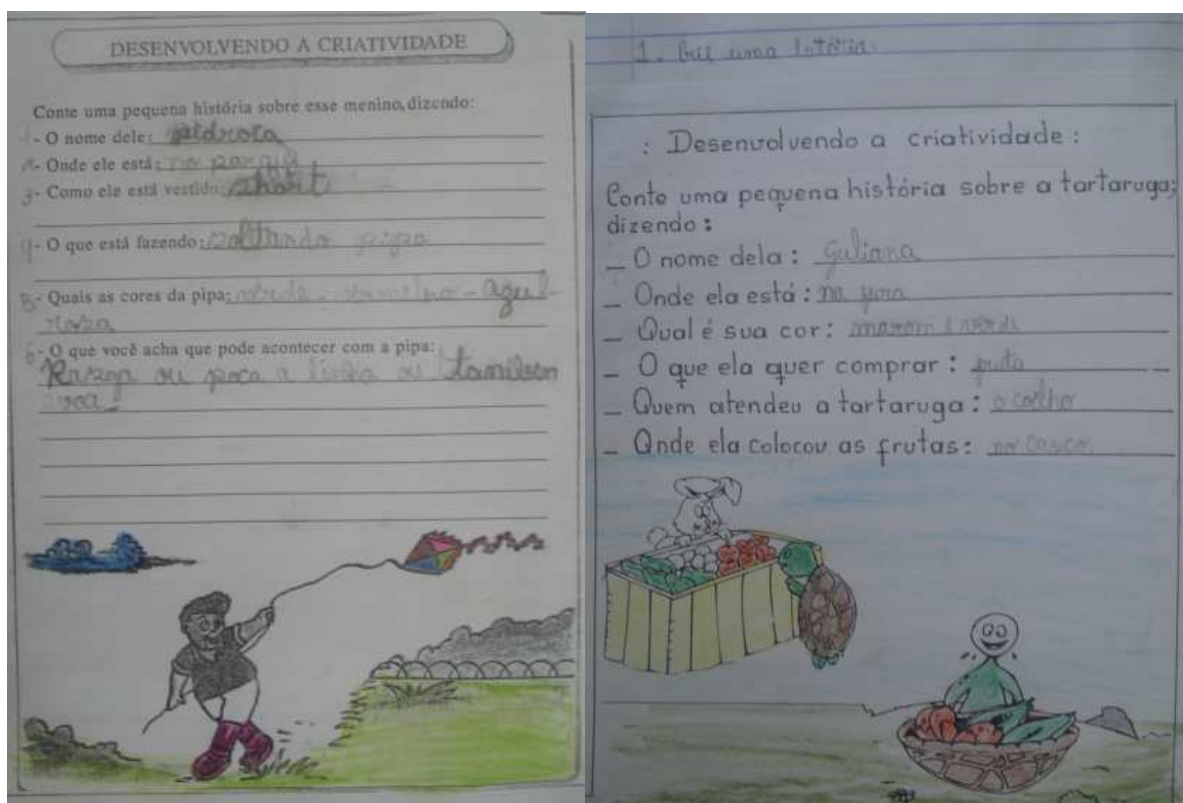 DESENVOLVENDO A CRIATIVIDADE
Conte uma pequena história sobre esse menino, dizendo:
1- O nome dele: pedroca
2- Onde ele está: no parque
3- Como ele está vestido: short
4- O que está fazendo: soltando pipa
5- Quais as cores da pipa: verde - vermelho - azul -
roza
6- O que você acha que pode acontecer com a pipa:
Razga ou poca a linha ou tamilbem
voa
1. uma istória.
: Desenvolvendo a criatividade :
Conte uma pequena história sobre a tartaruga;
dizendo :
_ O nome dela : Guliana
_ Onde ela está : na
_ Qual é sua cor : marrom e verde
_ O que ela quer comprar : fruta
_ Quem atendeu a tartaruga : o coelho
_ Onde ela colocou as frutas : no casco.